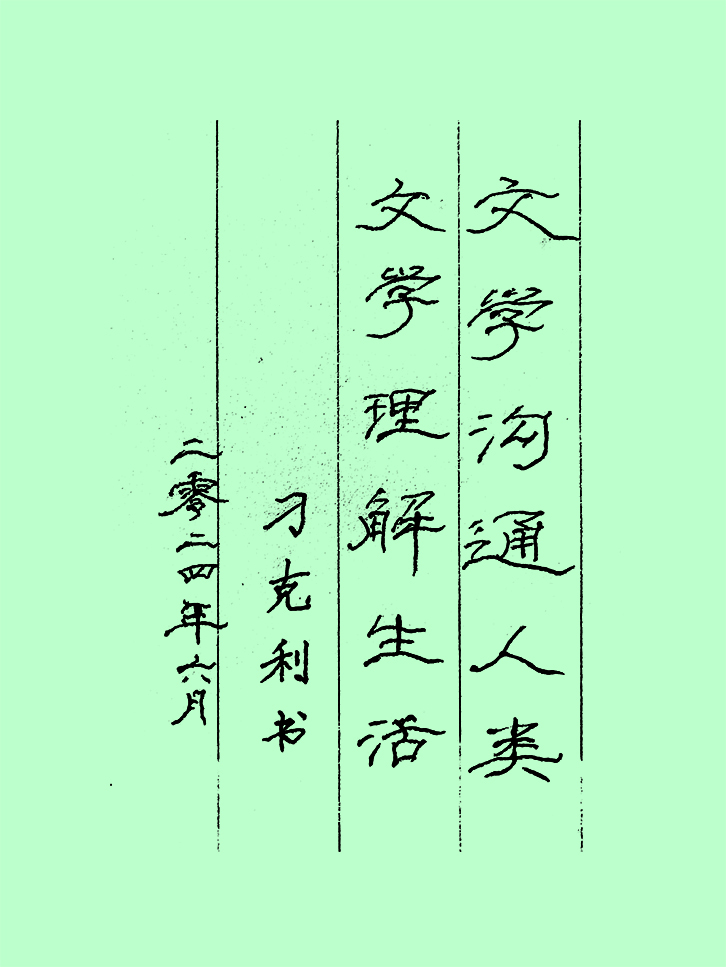 文学沟通人类
文学理解生活
刁克利书
二零二四年六月